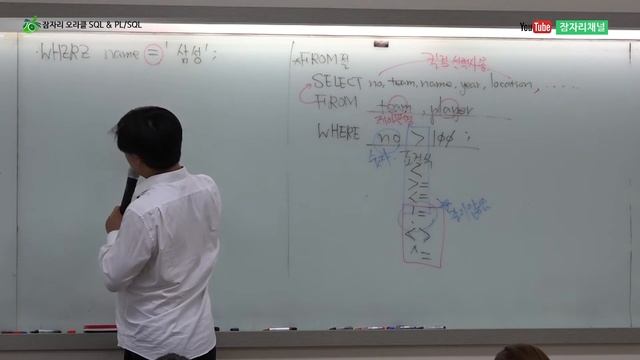 잠자리 오라클 SQL & PL/SQL
YouTube 잠자리채널
WHERE name = '삼성';
*FROM절
컬럼 선택사용
SELECT no, team, name, year, location, .....
FROM team, player
테이블명
WHERE no > 100 ;
숫자 조건식
<
>=
<=
!=
<>
^=